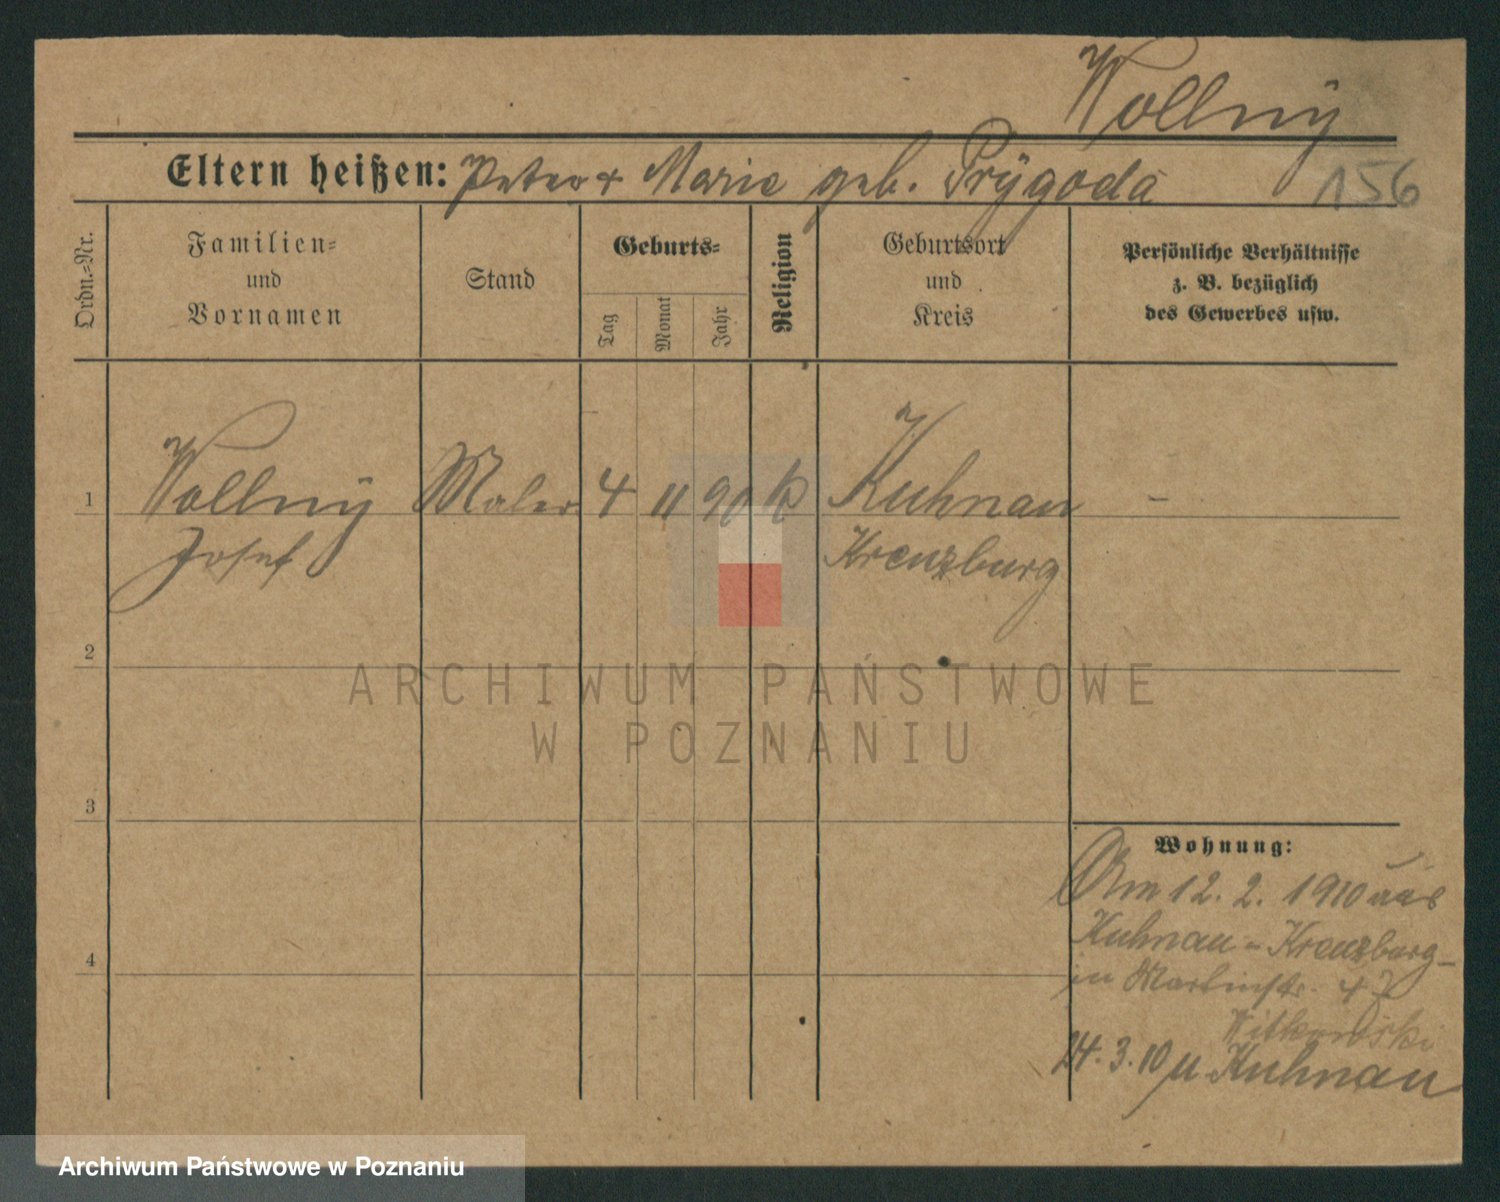 Wollny
Eltern heißen: Peter + Marie geb. Prÿgoda
156
Ordn.=Nr.
Familien=
und
Vornamen
Stand
Geburts=
Tag
Monat
Jahr
Religion
Geburtsort
und
Kreis
Persönliche Verhältnisse
z. B. bezüglich
des Gewerbes usw.
1
Wollny Maler 4 11 90 k Kuhnau -
Josef Kreuzburg
2
ARCHIWUM PAŃSTWOWE
W POZNANIU
3
Wohnung:
Am 12. 2. 1910 aus
Kuhnau - Kreuzburg -
4
in Martinstr. 47
Witkowski
24. 3. 10 n Kuhnau
Archiwum Państwowe w Poznaniu